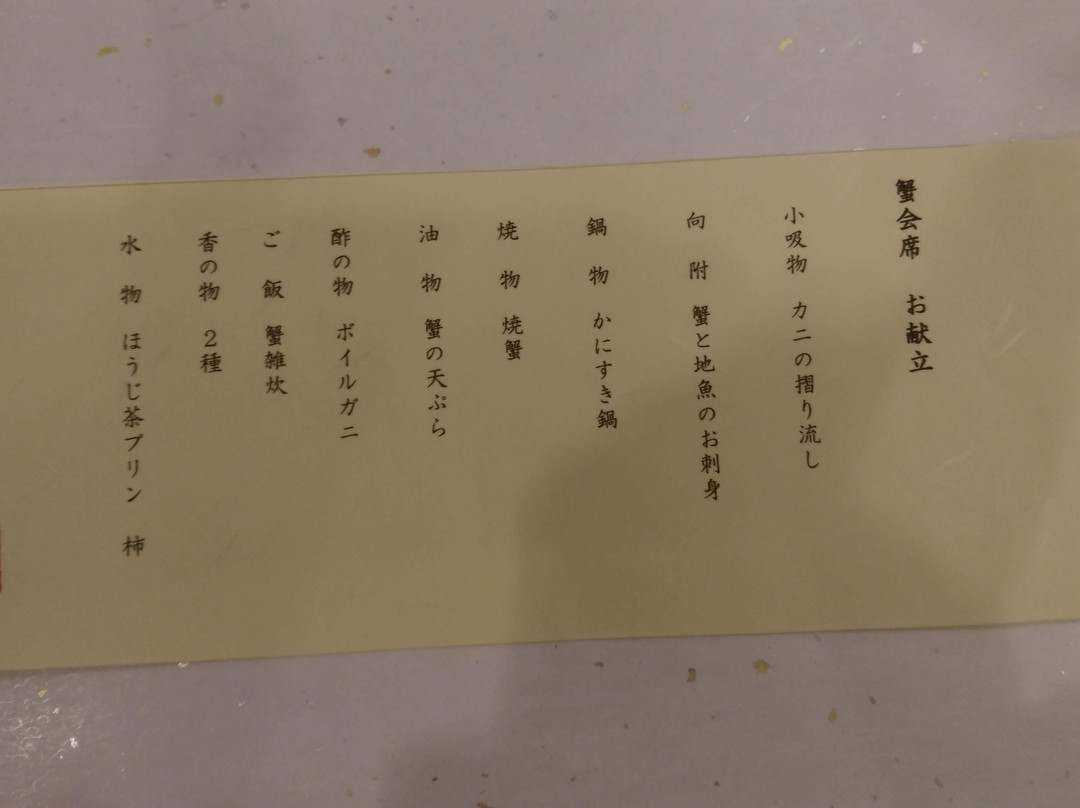 蟹会席 お献立
小吸物 カニの摺り流し
向附 蟹と地魚のお刺身
鍋物 かにすき鍋
焼物 焼蟹
油物 蟹の天ぷら
酢の物 ボイルガニ
ご飯 蟹雑炊
香の物 2種
水物 ほうじ茶プリン 柿